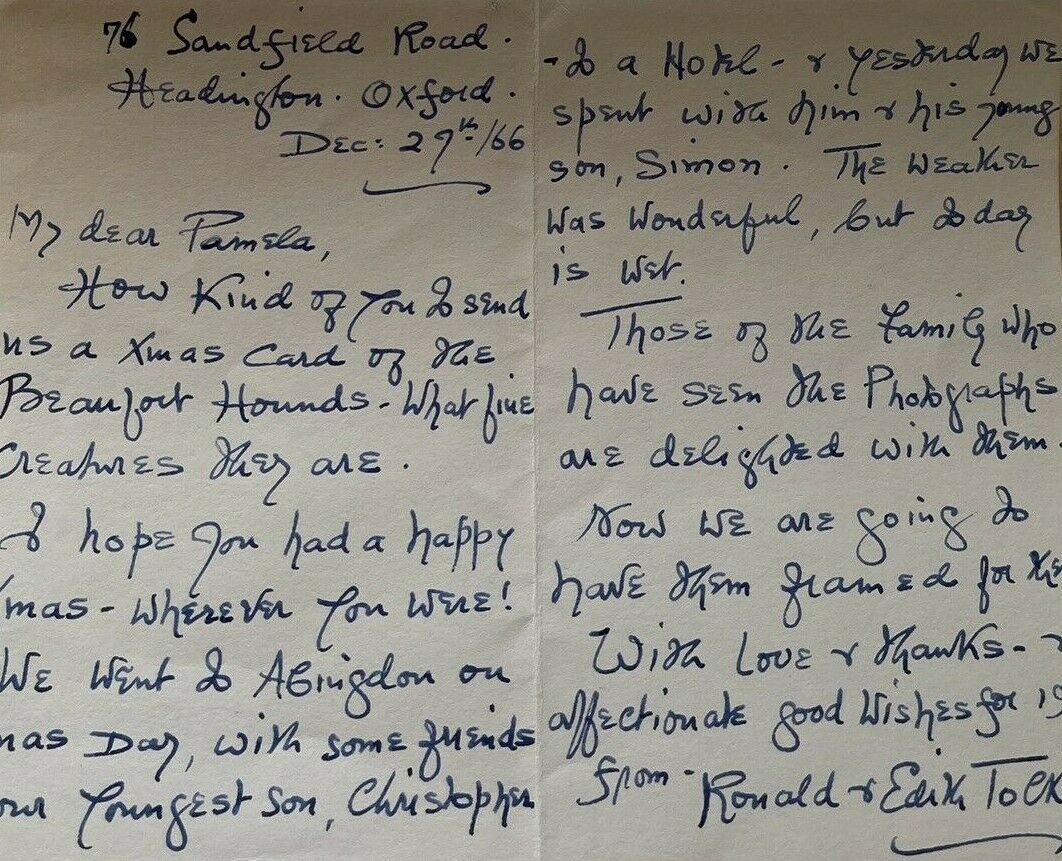 76 Sandfield Road.
Headington. Oxford.
Dec: 29th/66
My dear Pamela,
How Kind of you to send
us a Xmas Card of the
Beaufort Hounds - What fine
Creatures they are.
I hope you had a happy
mas - wherever you were!
We went to Abingdon on
mas Day, with some friends
our youngest son, Christopher
- to a Hotel - & yesterday we
spent with him & his young
son, Simon. The weather
was wonderful, but today
is wet.
Those of the family who
have seen the Photographs
are delighted with them.
Now we are going to
have them framed for the
With Love & thanks -
affectionate good wishes for 19
from - Ronald & Edith Tolk